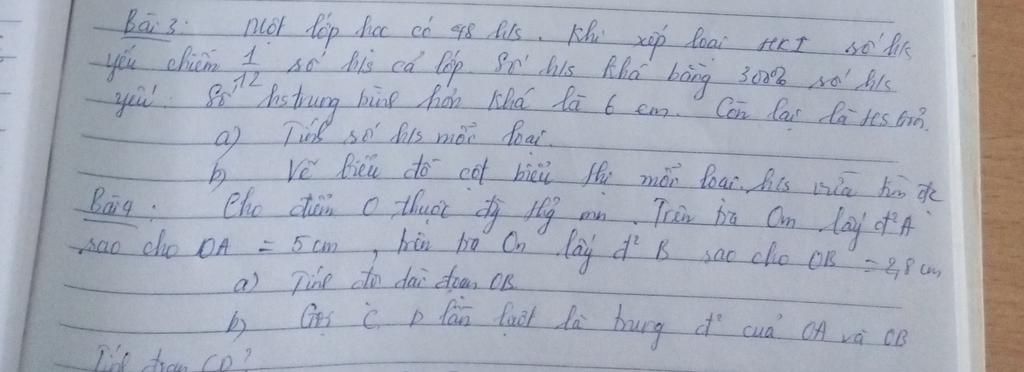 Bài 3: Một lớp học có 48 h/s. Khi xếp loại HKI số h/s
yếu chiếm 1/12 số h/s cả lớp. Số h/s khá bằng 300% số h/s
yếu. Số hs trung bình hơn khá là 6 em. Còn lại là HS Giỏi.
a) Tính số h/s mỗi loại.
b) Vẽ biểu đồ cột biểu thị mỗi loại h/s vừa tìm đc
Bài 4: Cho điểm O thuộc đg thg mn. Trên tia Om lấy đ² A
sao cho OA = 5 cm, trên tia On lấy đ² B sao cho OB = 2,8 cm
a) Tính độ dài đoạn OB
b) Gọi C, D lần lượt là trung đ² của OA và OB
Tính đoạn CD?